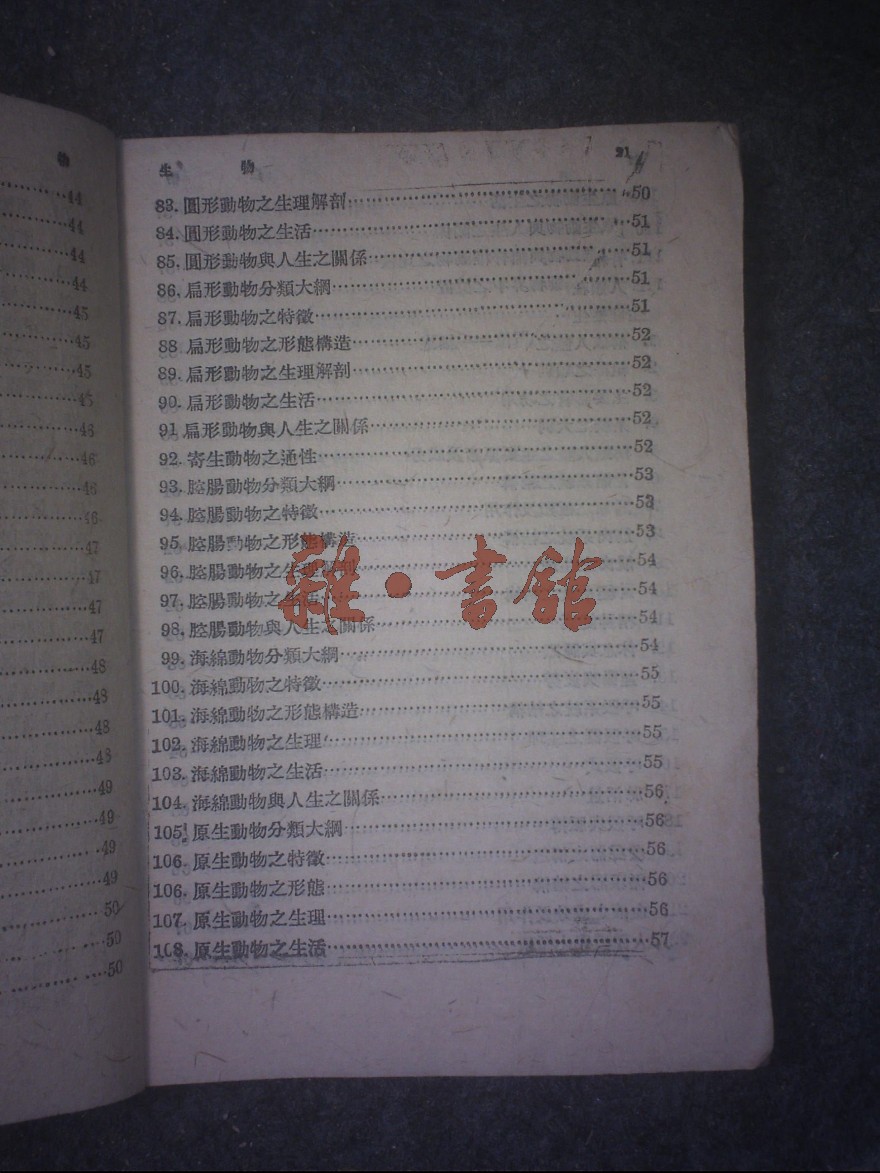 物
44
44
44
44
45
45
45
45
46
46
46
46
47
47
47
47
48
48
48
48
49
49
49
49
50
50
50
生 物 21
83. 圓形動物之生理解剖 50
84. 圓形動物之生活 51
85. 圓形動物與人生之關係 51
86. 扁形動物分類大綱 51
87. 扁形動物之特徵 51
88 扁形動物之形態構造 52
89. 扁形動物之生理解剖 52
90. 扁形動物之生活 52
91 扁形動物與人生之關係 52
92. 寄生動物之通性 52
93. 腔腸動物分類大綱 53
94. 腔腸動物之特徵 53
95. 腔腸動物之形態構造 53
96. 腔腸動物之生理解剖 54
97. 腔腸動物之生活 54
98. 腔腸動物與人生之關係 54
99. 海綿動物分類大綱 54
100. 海綿動物之特徵 55
101. 海綿動物之形態構造 55
102. 海綿動物之生理 55
103. 海綿動物之生活 55
104. 海綿動物與人生之關係 56
105. 原生動物分類大綱 56
106. 原生動物之特徵 56
106. 原生動物之形態 56
107. 原生動物之生理 56
108. 原生動物之生活 57
雜·書館